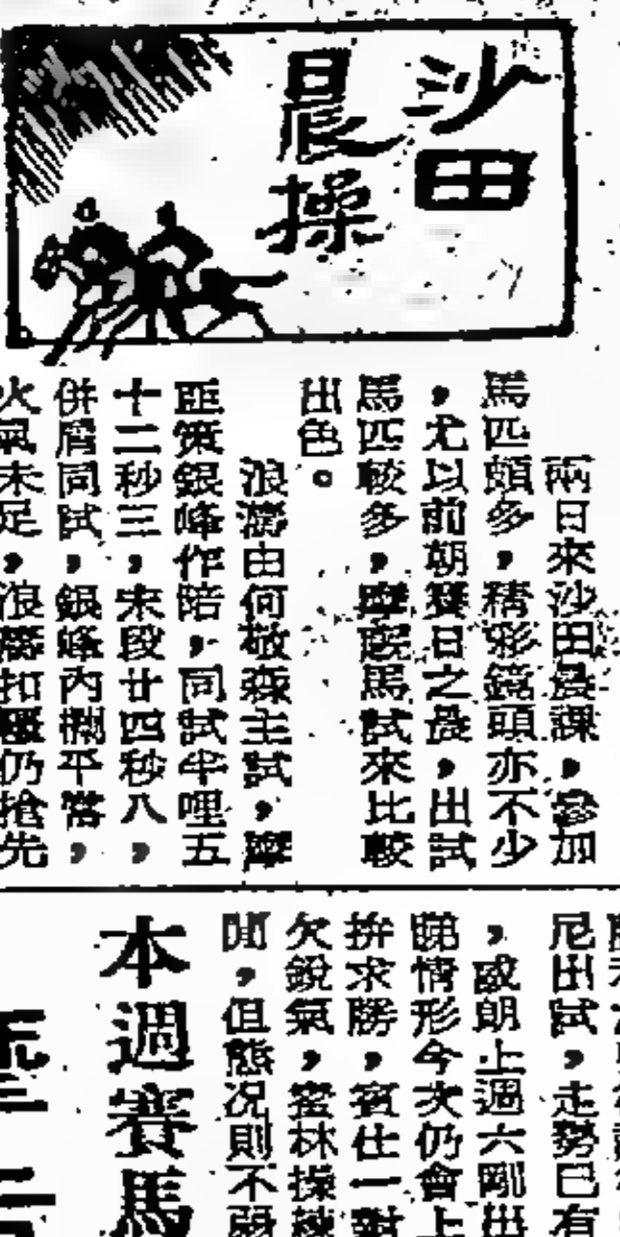 沙田
晨操
兩日來沙田晨課，參加
馬匹頗多，精彩鏡頭亦不少
，尤以前朝賽日之晨，出試
馬匹較多，摩啟馬試來比較
出色。
浪濤由何敬森主試，摩
匪策銀峰作陪，同試半哩五
十二秒三，末段廿四秒八，
併肩同試，銀峰內欄平常，
火氣未足，浪濤扣騎仍搶先
尼出試，走勢已有
，或朗上週六剛出
睇情形今次仍會上
拚求勝，賓仕一對
欠銳氣，蜜林操練
聞，但態况則不弱
本週賽馬